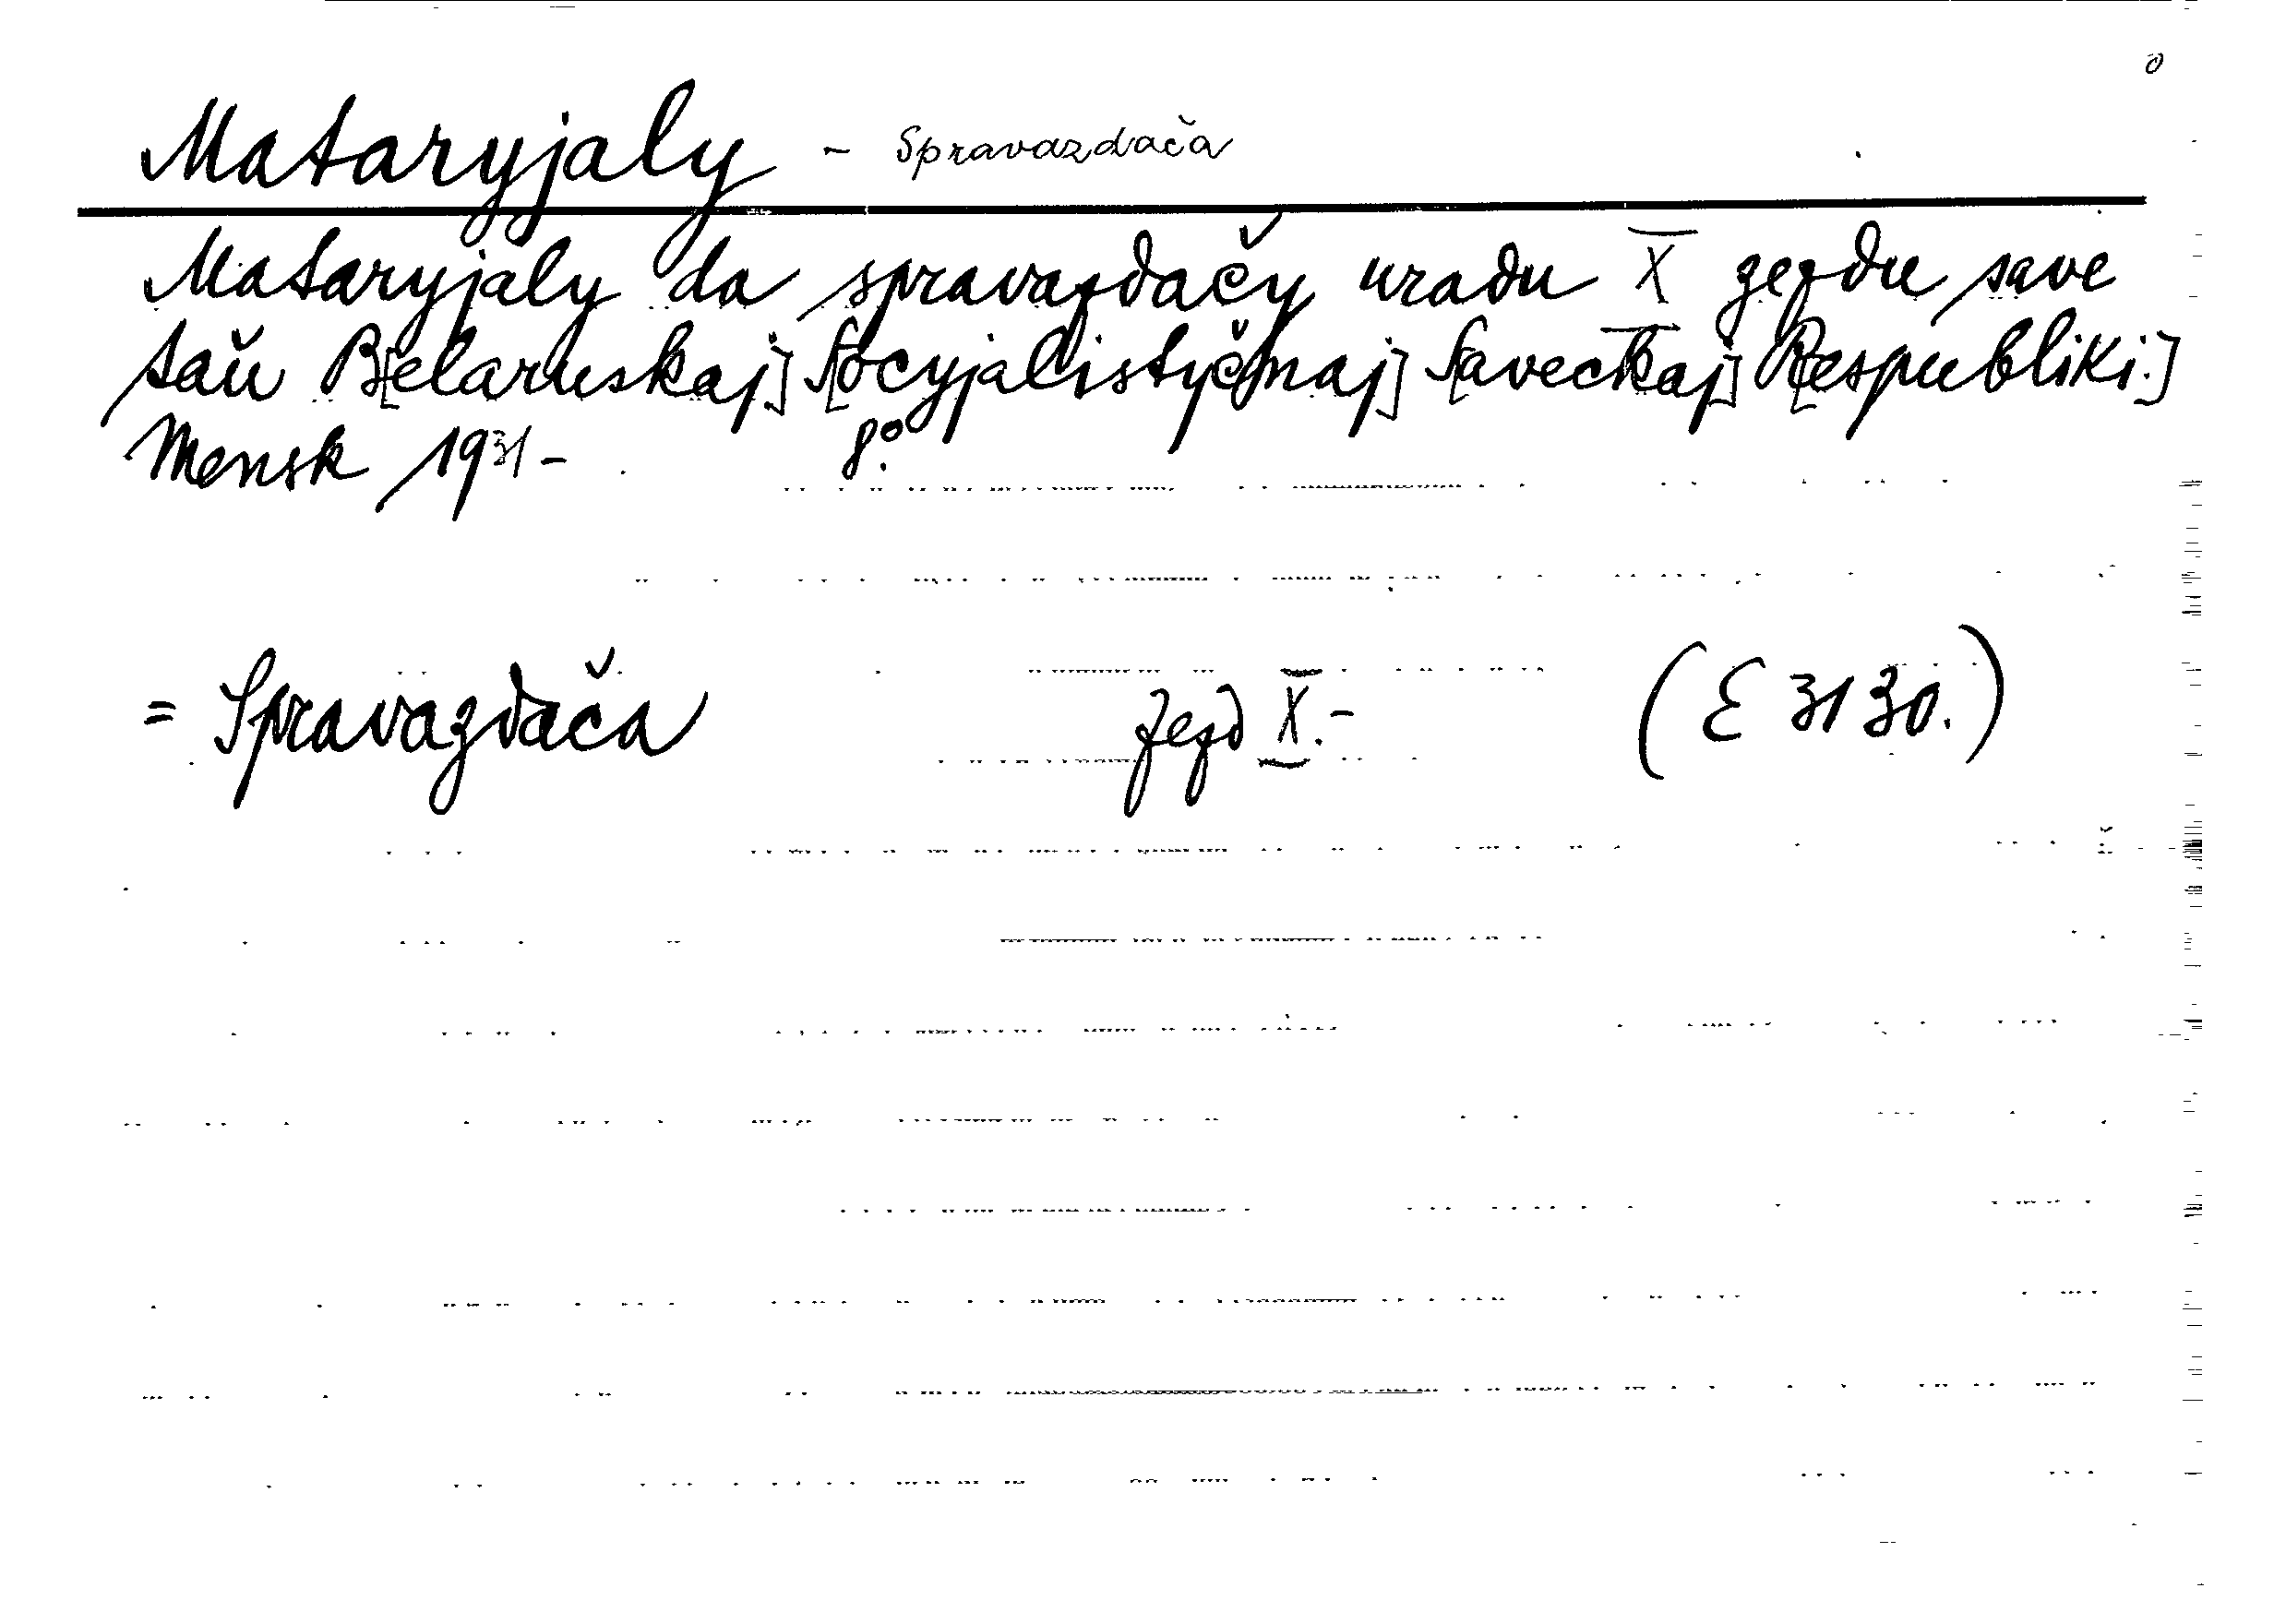 Mataryjaly - Spravazdača
Mataryjaly da spravazdačy uradu X zezdu save
taŭ B[elaruskaj] S[ocyjalistyčnaj] S[aveckaj] R[espubliki.]
Mensk 1931- 8°.
= Spravazdača zezd X.- (E 3130.)